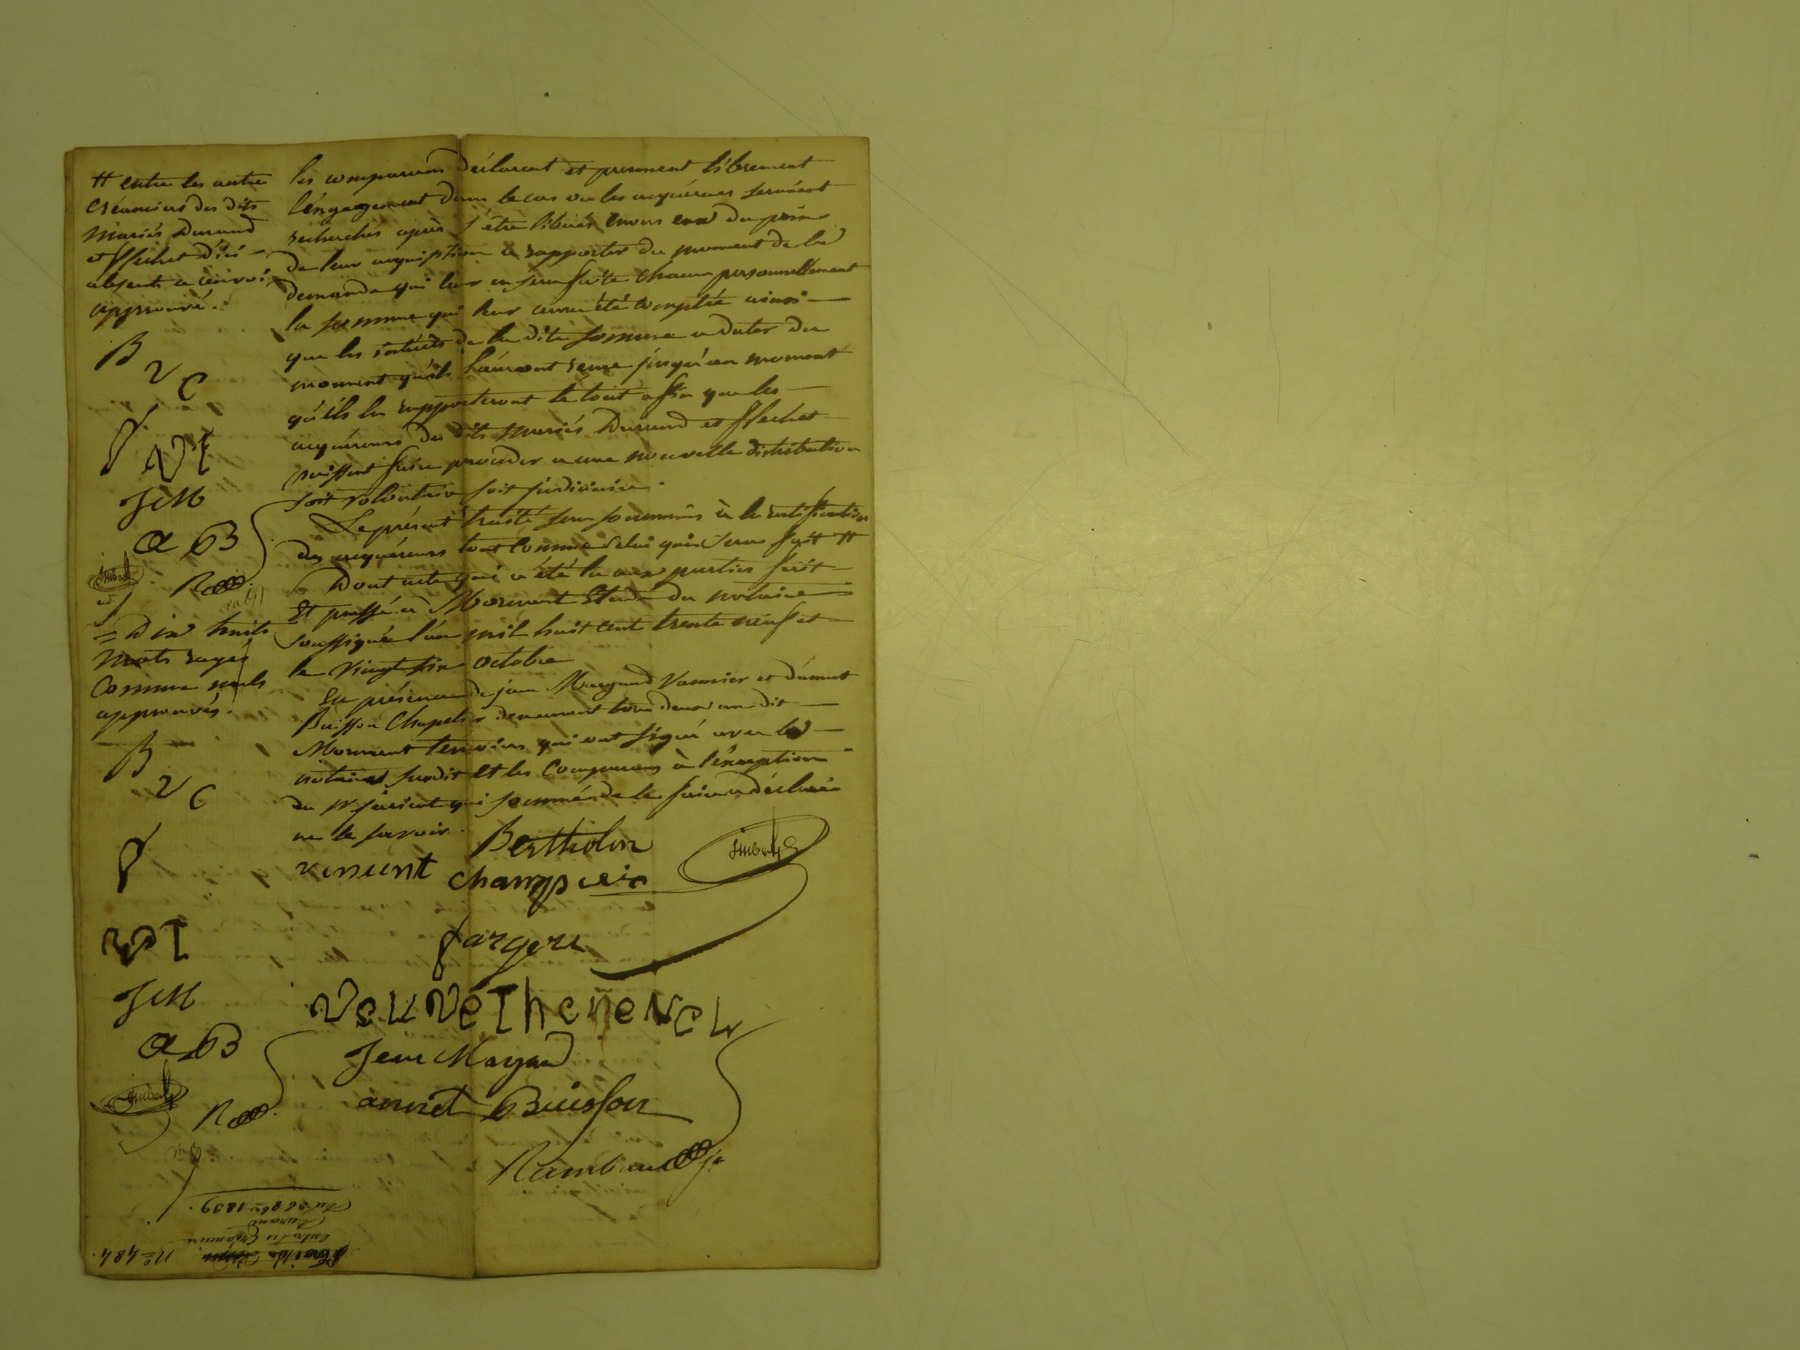 # entre les autre
créanciers des dits
mariés Durand
et ffléchet d'ici
absents a ce renvoi
approuvé.
B
v c
f
VT
JM
a B
R
Dix huit
mots rayés
comme nuls
approuvés.
B
v c
f
VT
JM
a B
R
les comparans déclarent et prennent librement
l'engagement dans le cas ou les acquéreurs seraient
recherchés après s'être libérés envers eux du prix
de leur acquisition a rapporter du moment de la
demande qui leur en sera faite chacun personnellement
la somme qui leur aura été comptée ainsi
que les intérêts de la dite somme a dater du
moment qu'ils l'auront reçue jusqu'au moment
qu'ils la rapporteront le tout affin que les
acquéreurs des dits mariés Durand et ffléchet
puissent faire procéder a une nouvelle distribution
soit volontaire soit judiciaire.
Le présent traité sera soumis à la ratification
des acquéreurs tout comme celui qui sera fait #
Dont acte qui a été lu aux parties fait
et passé a Mornant Etude du notaire
soussigné l'an mil huit cent trente neuf et
le vingt six octobre
En présence de jean Mayand Vannier et d'annet
Buisson Chapelier demeurant tous deux au dit
Mornant temoins qui ont signé avec le
notaire susdit et les comparans à l'exception
du Sr qui sommé de le faire a déclaré
ne le savoir.
Bertholon
vincent champ
fargere
veuve Thenevel
Jean Mayand
annet Buisson
Rambaud
N° 484.
entre les Créanciers
Durand
Du 26 8bre 1839.